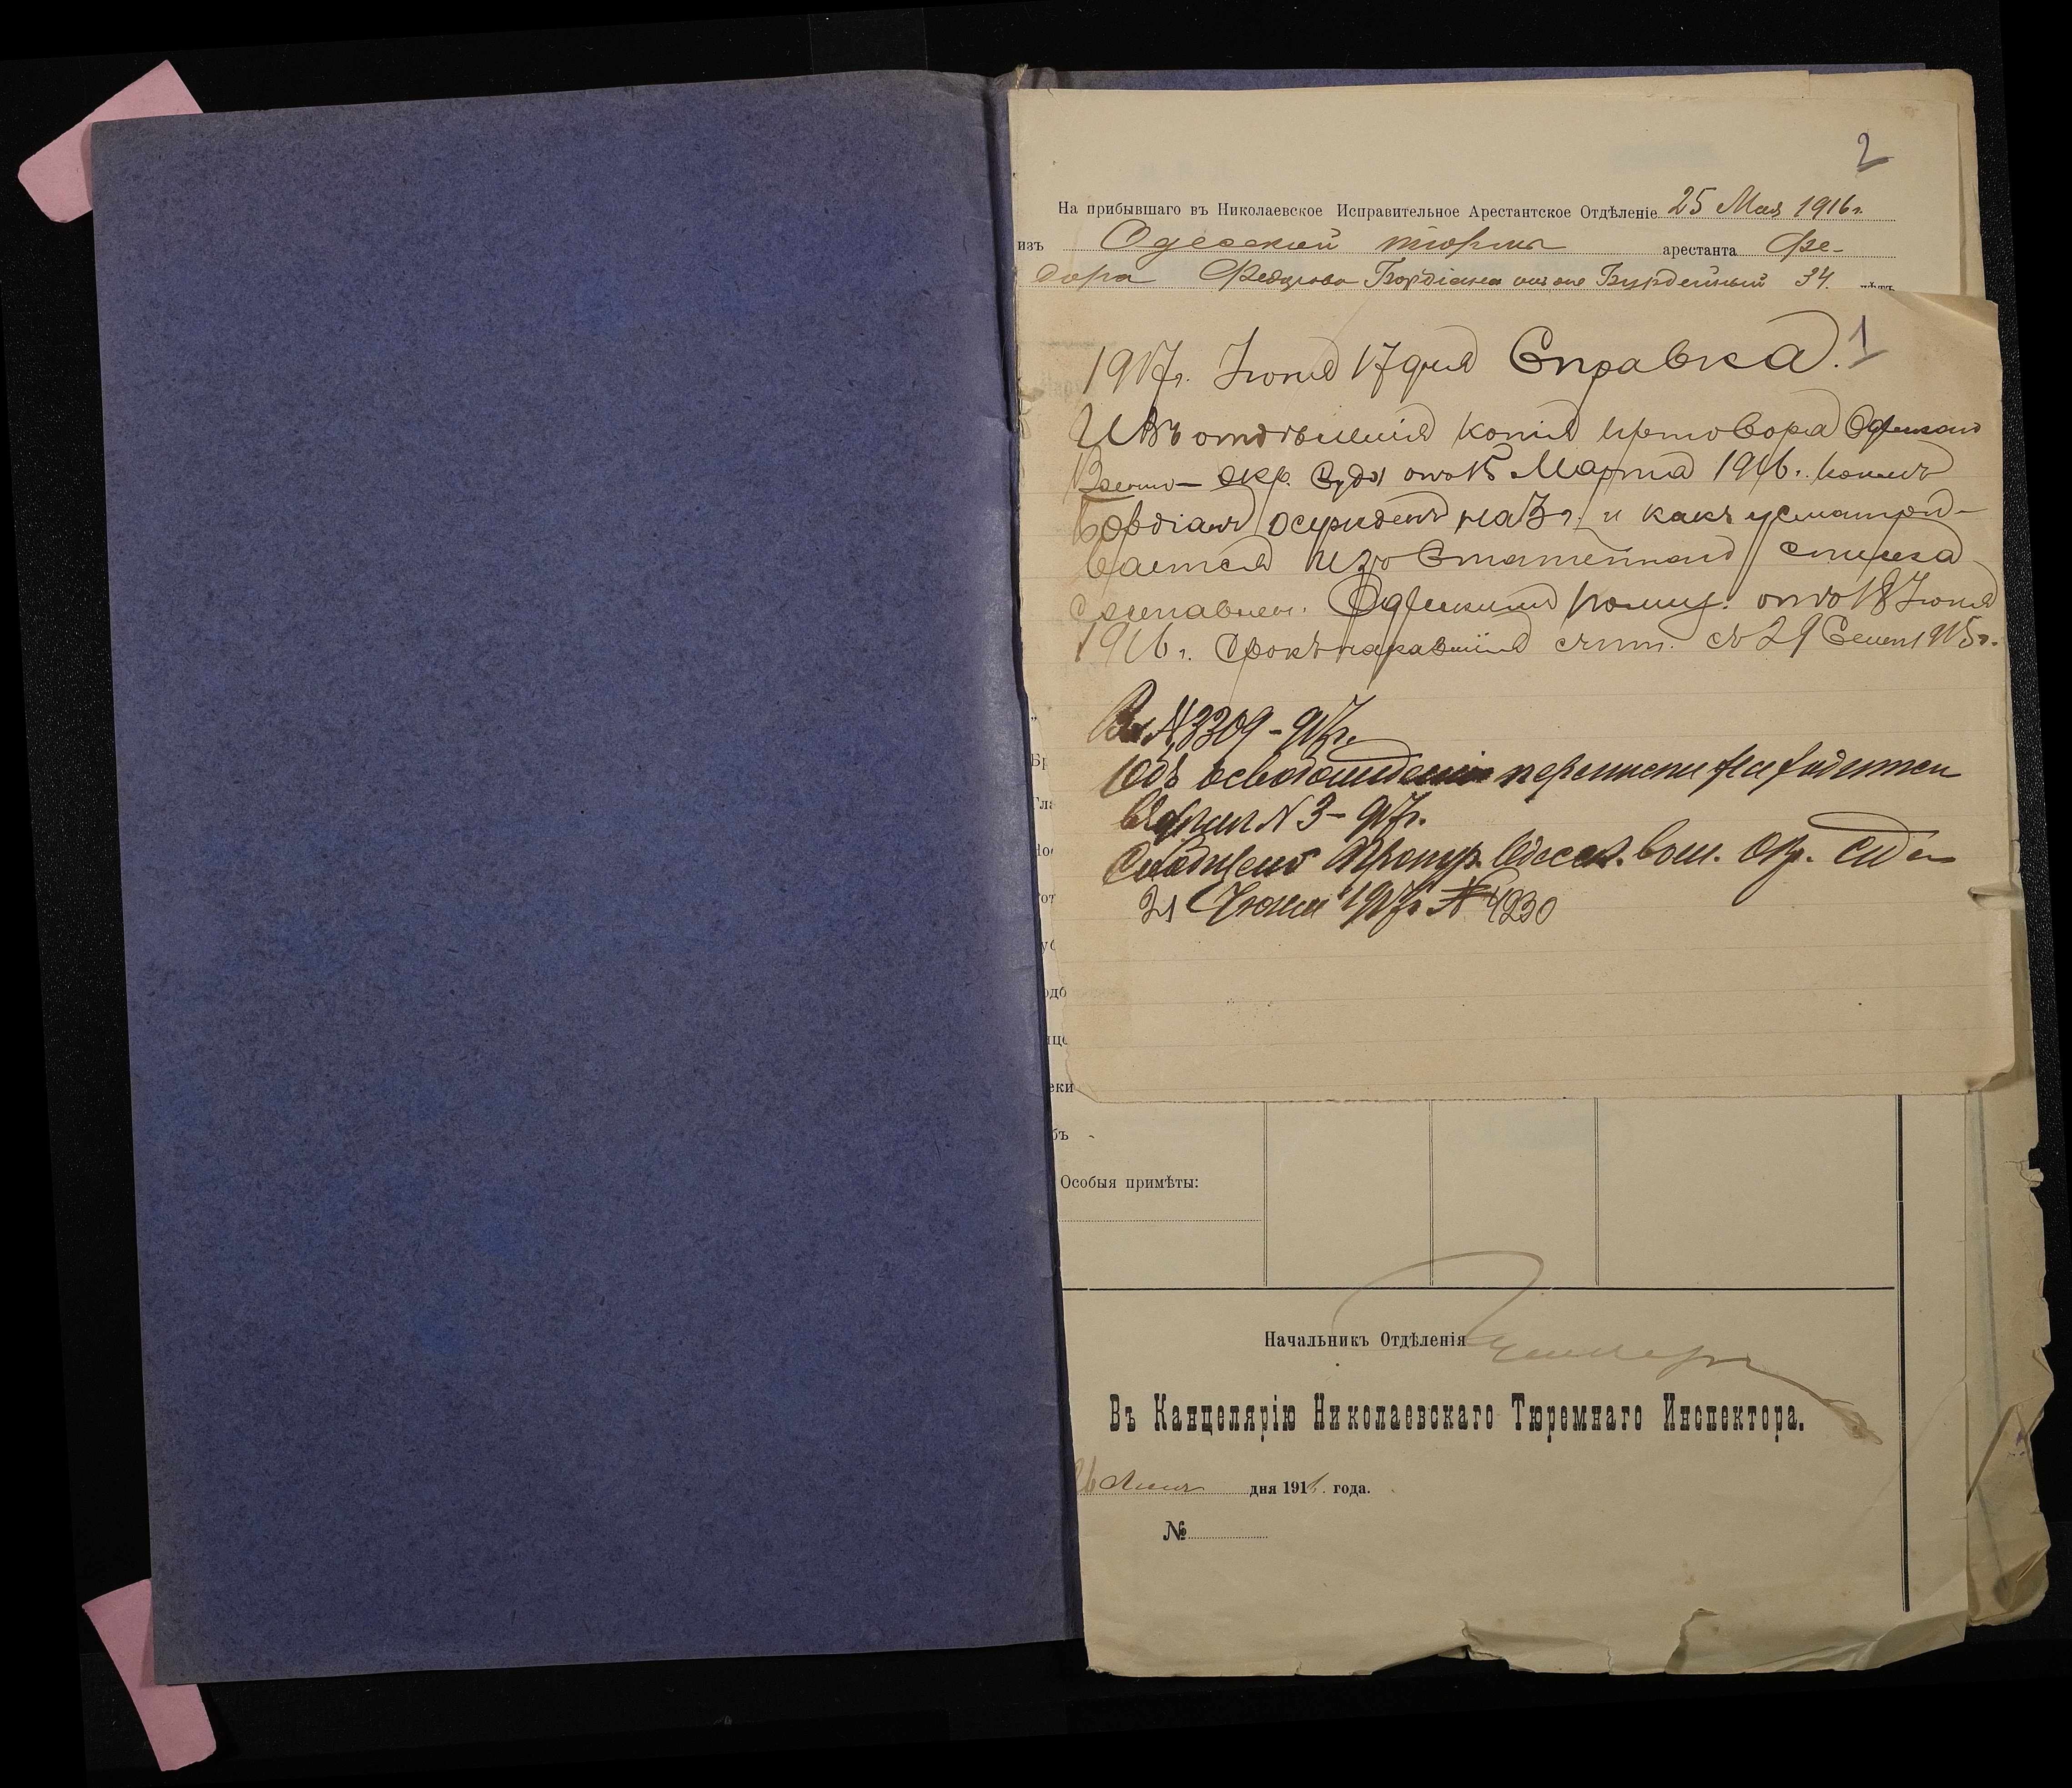 2
На прибывшаго въ Николаевское Исправительное Арестантское Отдѣленіе 25 Мая 1916 г.
изъ Одесской тюрмы арестанта Фе-
дора Федорова Бордіана онъ же Бурдейный 34. лѣтъ
1917 г. Іюня 17 дня Справка. 1
Въ отдѣленіи копія приговора Одесскаго
Военно-окр. Суда отъ 15 Марта 1916 г. коимъ
Бордіанъ осужденъ на 3 г. и какъ усматри-
вается изъ Статейнаго списка
составлен. Одесскимъ полиц. отъ 18 Іюня
1916 г. Срокъ наказанія счит. съ 29 Сент 1915 г.
Вх № 3309 - 917 г.
Объ освобожденіи переписка находится
въ № 3 - 917 г.
Сообщено Прокур. Одесск. воен. Окр. Суда
21 Іюня 1917 г. № 4230
Бр
Гла
Но
от
уб
одб
ице
еки
бъ
Особыя примѣты:
Начальникъ Отдѣленія
Въ Канцелярію Николаевскаго Тюремнаго Инспектора.
26 дня 1916. года.
№